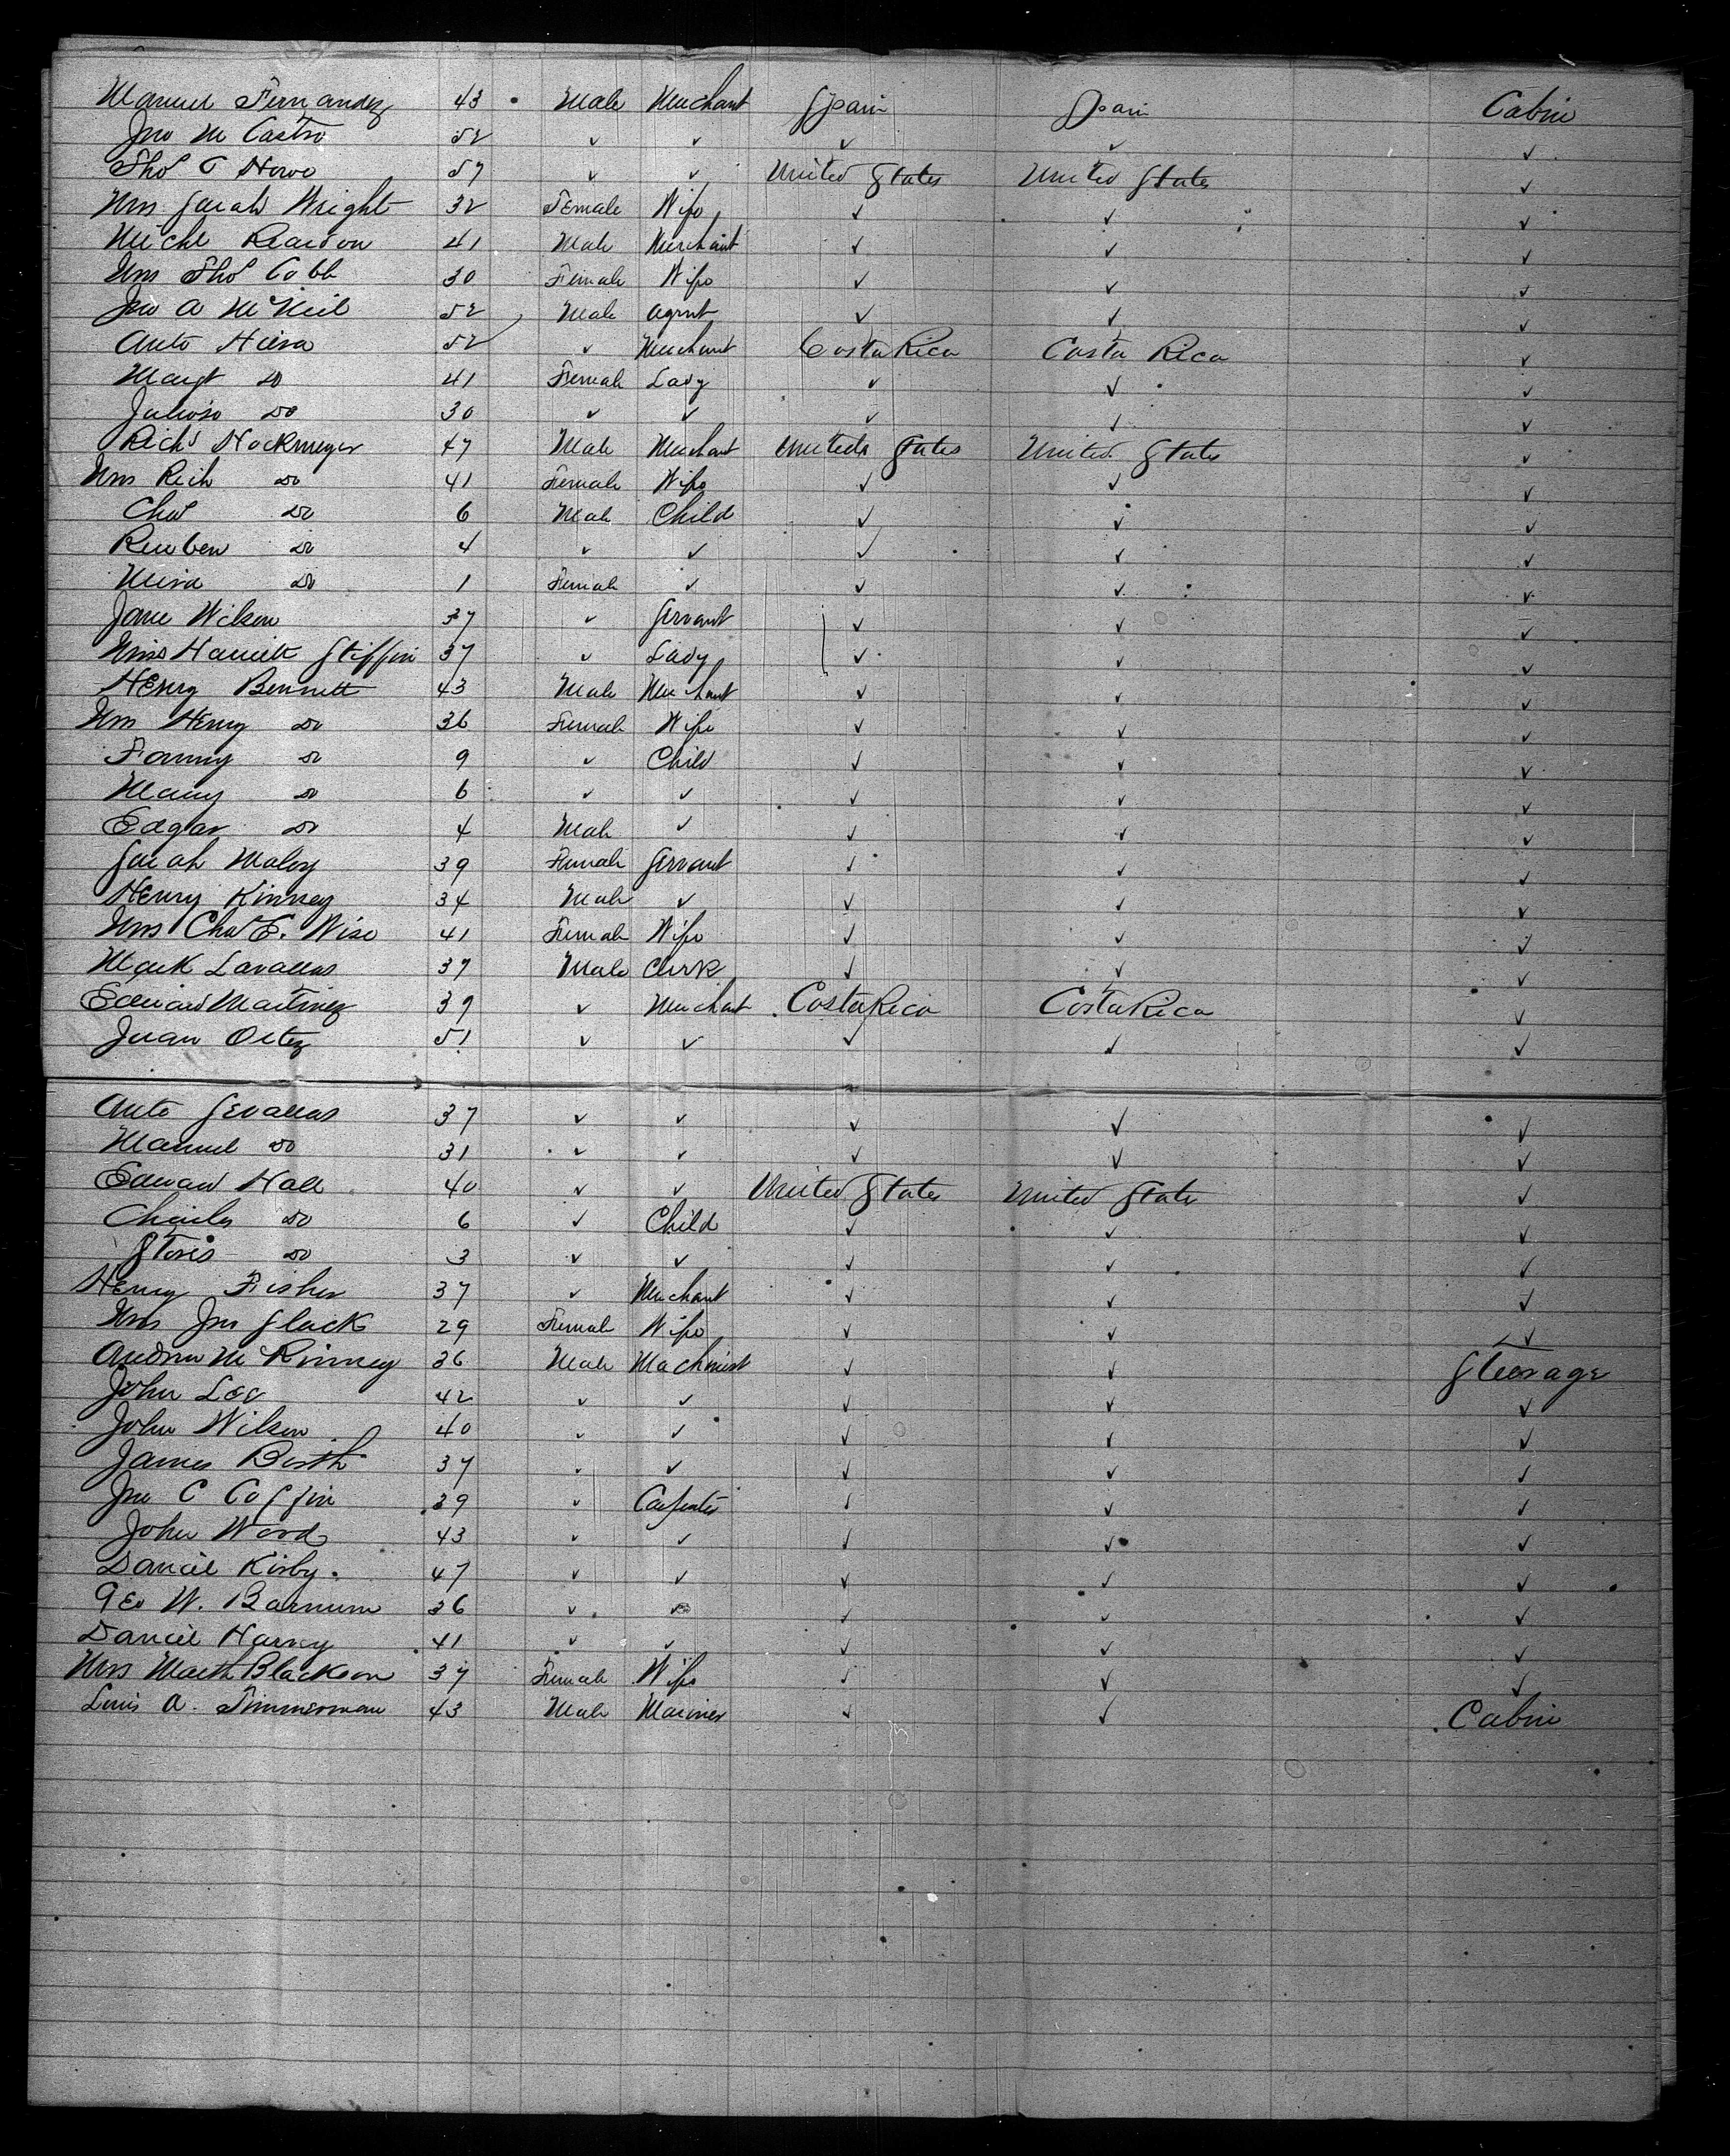 Manuel Fernandez 43 Male Merchant Spain Spain Cabin
Jno M Castro 52 ✓ ✓ ✓ ✓ ✓
Thos T Howe 57 ✓ ✓ United States United States ✓
Mrs Sarah Wright 32 Female Wife ✓ ✓ ✓
Michl Reardon 41 Male Merchant ✓ ✓ ✓
Mrs Thos Cobb 30 Female Wife ✓ ✓ ✓
Jno A McNeil 52 Male Agent ✓ ✓ ✓
Anto 52 ✓ Merchant Costa Rica Costa Rica ✓
Margt Do 41 Female Lady ✓ ✓ ✓
Do 30 ✓ ✓ ✓ ✓ ✓
Richd Hockmeyer 47 Male Merchant United States United States ✓
Mrs Rich Do 41 Female Wife ✓ ✓ ✓
Chas Do 6 Male Child ✓ ✓ ✓
Reuben Do 4 ✓ ✓ ✓ ✓ ✓
Do 1 Female ✓ ✓ ✓ ✓
Jane Wilson 37 ✓ Servant ✓ ✓ ✓
Miss Harriett 37 ✓ Lady ✓ ✓ ✓
Henry Bennett 43 Male Merchant ✓ ✓ ✓
Mrs Henry Do 36 Female Wife ✓ ✓ ✓
Fanny Do 9 ✓ Child ✓ ✓ ✓
Do 6 ✓ ✓ ✓ ✓ ✓
Edgar Do 4 Male ✓ ✓ ✓ ✓
Sarah Maloy 39 Female Servant ✓ ✓ ✓
Henry Kinney 34 Male ✓ ✓ ✓ ✓
Mrs Chas E. Wise 41 Female Wife ✓ ✓ ✓
Mark 37 Male Clerk ✓ ✓ ✓
Edward Martinez 39 ✓ Merchant Costa Rica Costa Rica ✓
Juan Ortez 51 ✓ ✓ ✓ ✓ ✓
Anto 37 ✓ ✓ ✓ ✓ ✓
Manuel Do 31 ✓ ✓ ✓ ✓ ✓
Edward Hall 40 ✓ ✓ United States United States ✓
Charles Do 6 ✓ Child ✓ ✓ ✓
Do 3 ✓ ✓ ✓ ✓ ✓
Henry Fisher 37 ✓ Merchant ✓ ✓ ✓
Mrs Jno Slack 29 Female Wife ✓ ✓ ✓
Andrew McKinney 36 Male Machinist ✓ ✓ Steerage
John Lee 42 ✓ ✓ ✓ ✓ ✓
John Wilson 40 ✓ ✓ ✓ ✓ ✓
James Booth 37 ✓ ✓ ✓ ✓ ✓
Jno C Coffin 39 ✓ Carpenter ✓ ✓ ✓
John Wood 43 ✓ ✓ ✓ ✓ ✓
Daniel Kirby. 47 ✓ ✓ ✓ ✓ ✓
Geo W. Barnum 36 ✓ ✓ ✓ ✓ ✓
Daniel Harvey 41 ✓ ✓ ✓ ✓ ✓
Mrs Marth Blackson 37 Female Wife ✓ ✓ ✓
Louis A. Timmerman 43 Male Mariner ✓ ✓ Cabin